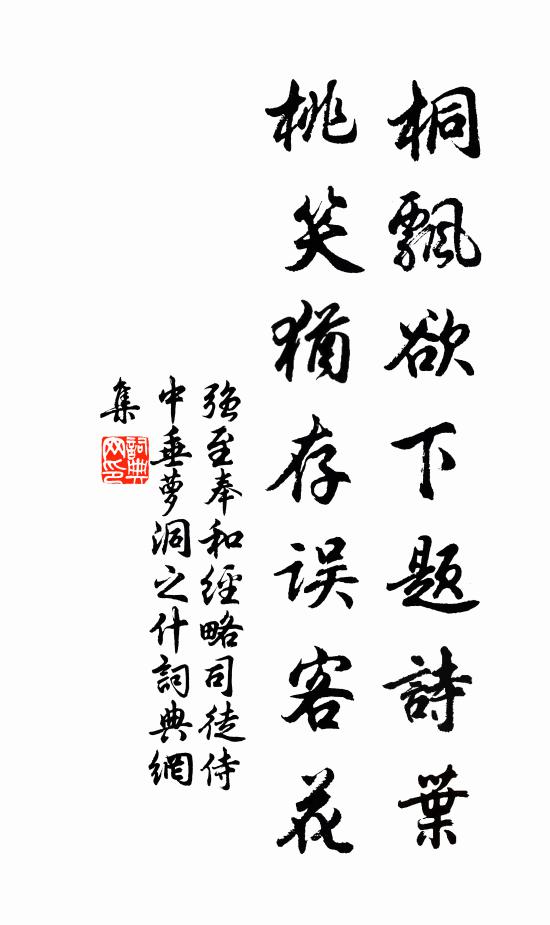 桐飄欲下題詩葉
桃笑猶存誤客花
強至奉和經略司徒侍
中垂夢洞之什詞典網
集
詞典
网印